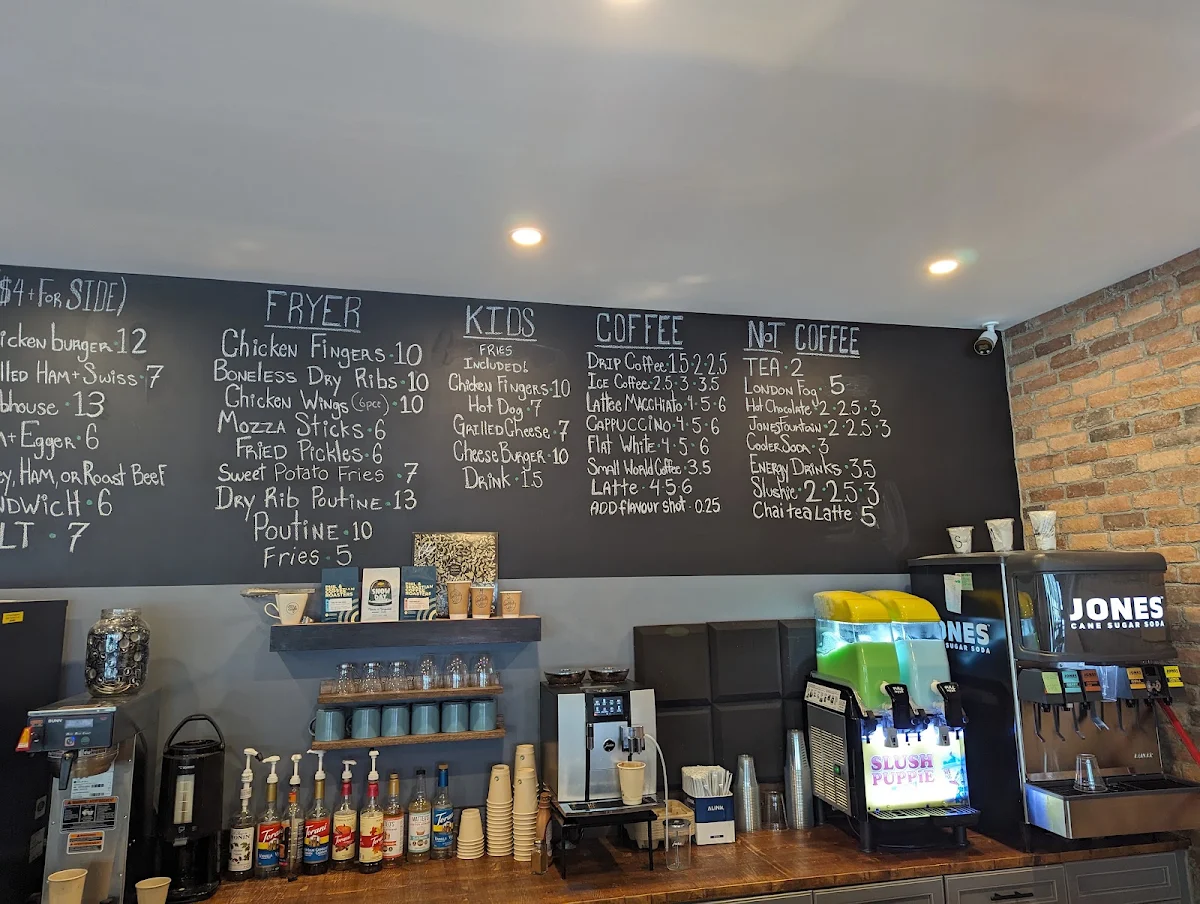 $4+ FOR SIDE)
icken burger · 12
lled Ham + Swiss · 7
bhouse · 13
+ Egger · 6
ey, Ham, or Roast Beef
ndwich · 6
LT · 7
FRYER
Chicken Fingers · 10
Boneless Dry Ribs · 10
Chicken Wings (6pce) · 10
Mozza Sticks · 6
Fried Pickles · 6
Sweet Potato Fries · 7
Dry Rib Poutine · 13
Poutine · 10
Fries · 5
KIDS
FRIES
INCLUDED!
Chicken Fingers · 10
Hot Dog · 7
Grilled Cheese · 7
Cheese Burger · 10
Drink · 1.5
COFFEE
Drip Coffee · 1.5 · 2 · 2.5
Ice Coffee · 2.5 · 3 · 3.5
Lattee Macchiato · 4 · 5 · 6
Cappuccino · 4 · 5 · 6
Flat White · 4 · 5 · 6
Small World Coffee · 3.5
Latte · 4 · 5 · 6
ADD flavour shot · 0.25
NOT COFFEE
TEA · 2
London Fog · 5
Hot Chocolate · 2 · 2.5 · 3
Jones Fountain · 2 · 2.5 · 3
Cooler Soda · 3
Energy Drinks · 3.5
Slushie · 2 · 2.5 · 3
Chai tea Latte · 5
SNOW DAY
BUNN
Torani
Torani
Torani
jura
ALPINE
SLUSH
PUPPiE
NES
SUGAR SODA
JONES
CANE SUGAR SODA
LANCER